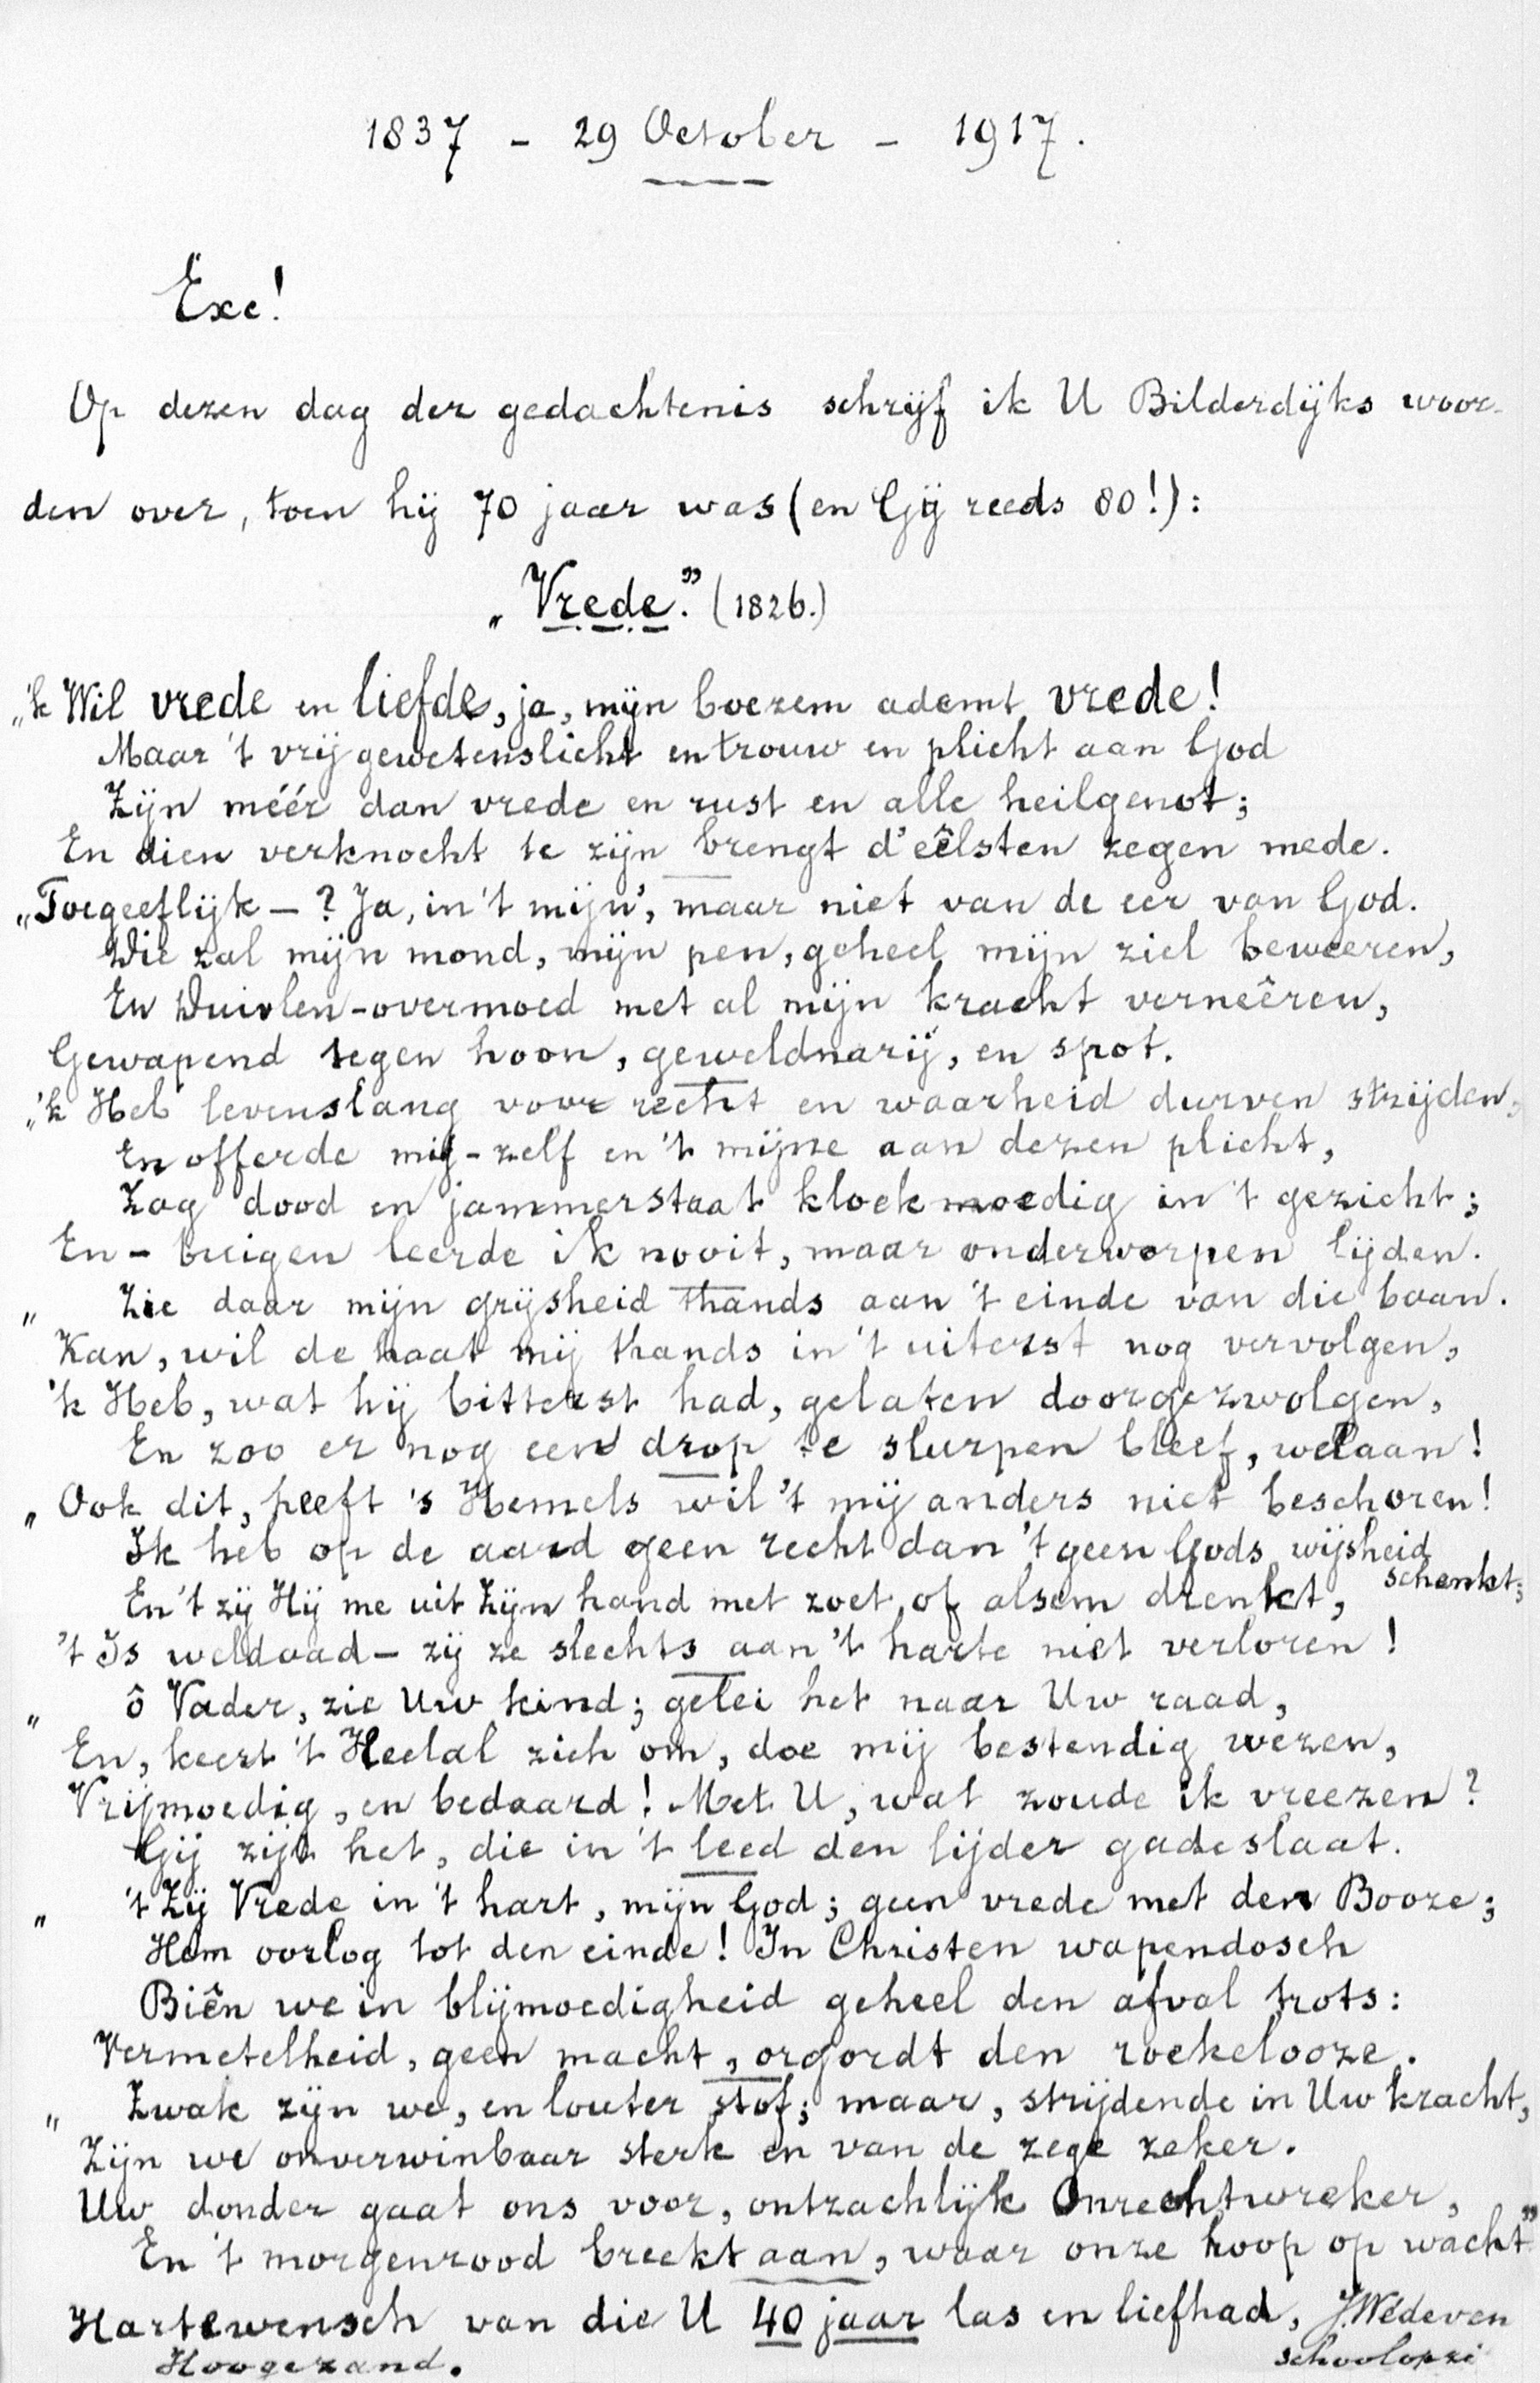 1837 - 29 October - 1917.
Exc!
Op dezen dag der gedachtenis schrijf ik U Bilderdijks woor-
den over, toen hij 70 jaar was (en Gij reeds 80!):
„Vrede." (1826.)
„'k Wil vrede en liefde, ja, mijn boezem ademt vrede!
Maar 't vrij gewetenslicht en trouw en plicht aan God
Zijn méér dan vrede en rust en alle heilgenot;
En dien verknocht te zijn brengt d'eêlsten zegen mede.
„Toegeeflijk—? Ja, in 't mijn', maar niet van de eer van God.
Die zal mijn mond, mijn pen, geheel mijn ziel beweeren,
En Duivlen-overmoed met al mijn kracht verneêren,
Gewapend tegen hoon, geweldnarij, en spot.
„'k Heb levenslang voor recht en waarheid durven strijden,
En offerde mij-zelf en 't mijne aan dezen plicht,
Zag dood en jammerstaat kloekmoedig in 't gezicht;
En - buigen leerde ik nooit, maar onderworpen lijden.
„ Zie daar mijn grijsheid thands aan 't einde van die baan.
Kan, wil de haat mij thands in 't uiterst nog vervolgen,
'k Heb, wat hij bitterst had, gelaten doorgezwolgen,
En zoo er nog een drop te slurpen bleef, welaan!
„ Ook dit, heeft 's Hemels wil 't mij anders niet beschoren!
Ik heb op de aard geen recht dan 't geen Gods wijsheid
schenkt;
En 't zij Hij me uit Zijn hand met zoet of alsem drenkt,
't Is weldaad— zij ze slechts aan 't harte niet verloren!
„ ô Vader, zie Uw kind; gelei het naar Uw raad,
En, keert 't Heelal zich om, doe mij bestendig wezen,
Vrijmoedig, en bedaard! Met U, wat zoude ik vreezen?
Gij zijt het, die in 't leed den lijder gadeslaat.
„ 't Zij Vrede in 't hart, mijn God; geen vrede met den Booze;
Hem oorlog tot den einde! In Christen wapendosch
Biên we in blijmoedigheid geheel den afval trots:
Vermetelheid, geen macht, orgordt den roekelooze.
„ Zwak zijn we, en louter stof; maar, strijdende in Uw kracht,
Zijn we onverwinbaar sterk en van de zege zeker.
Uw donder gaat ons voor, ontzachlijk Onrechtwreker,
En 't morgenrood breekt aan, waar onze hoop op wacht"
Hartewensch van die U 40 jaar las en liefhad, J. Wedeven
Hoogezand. schoolopzi